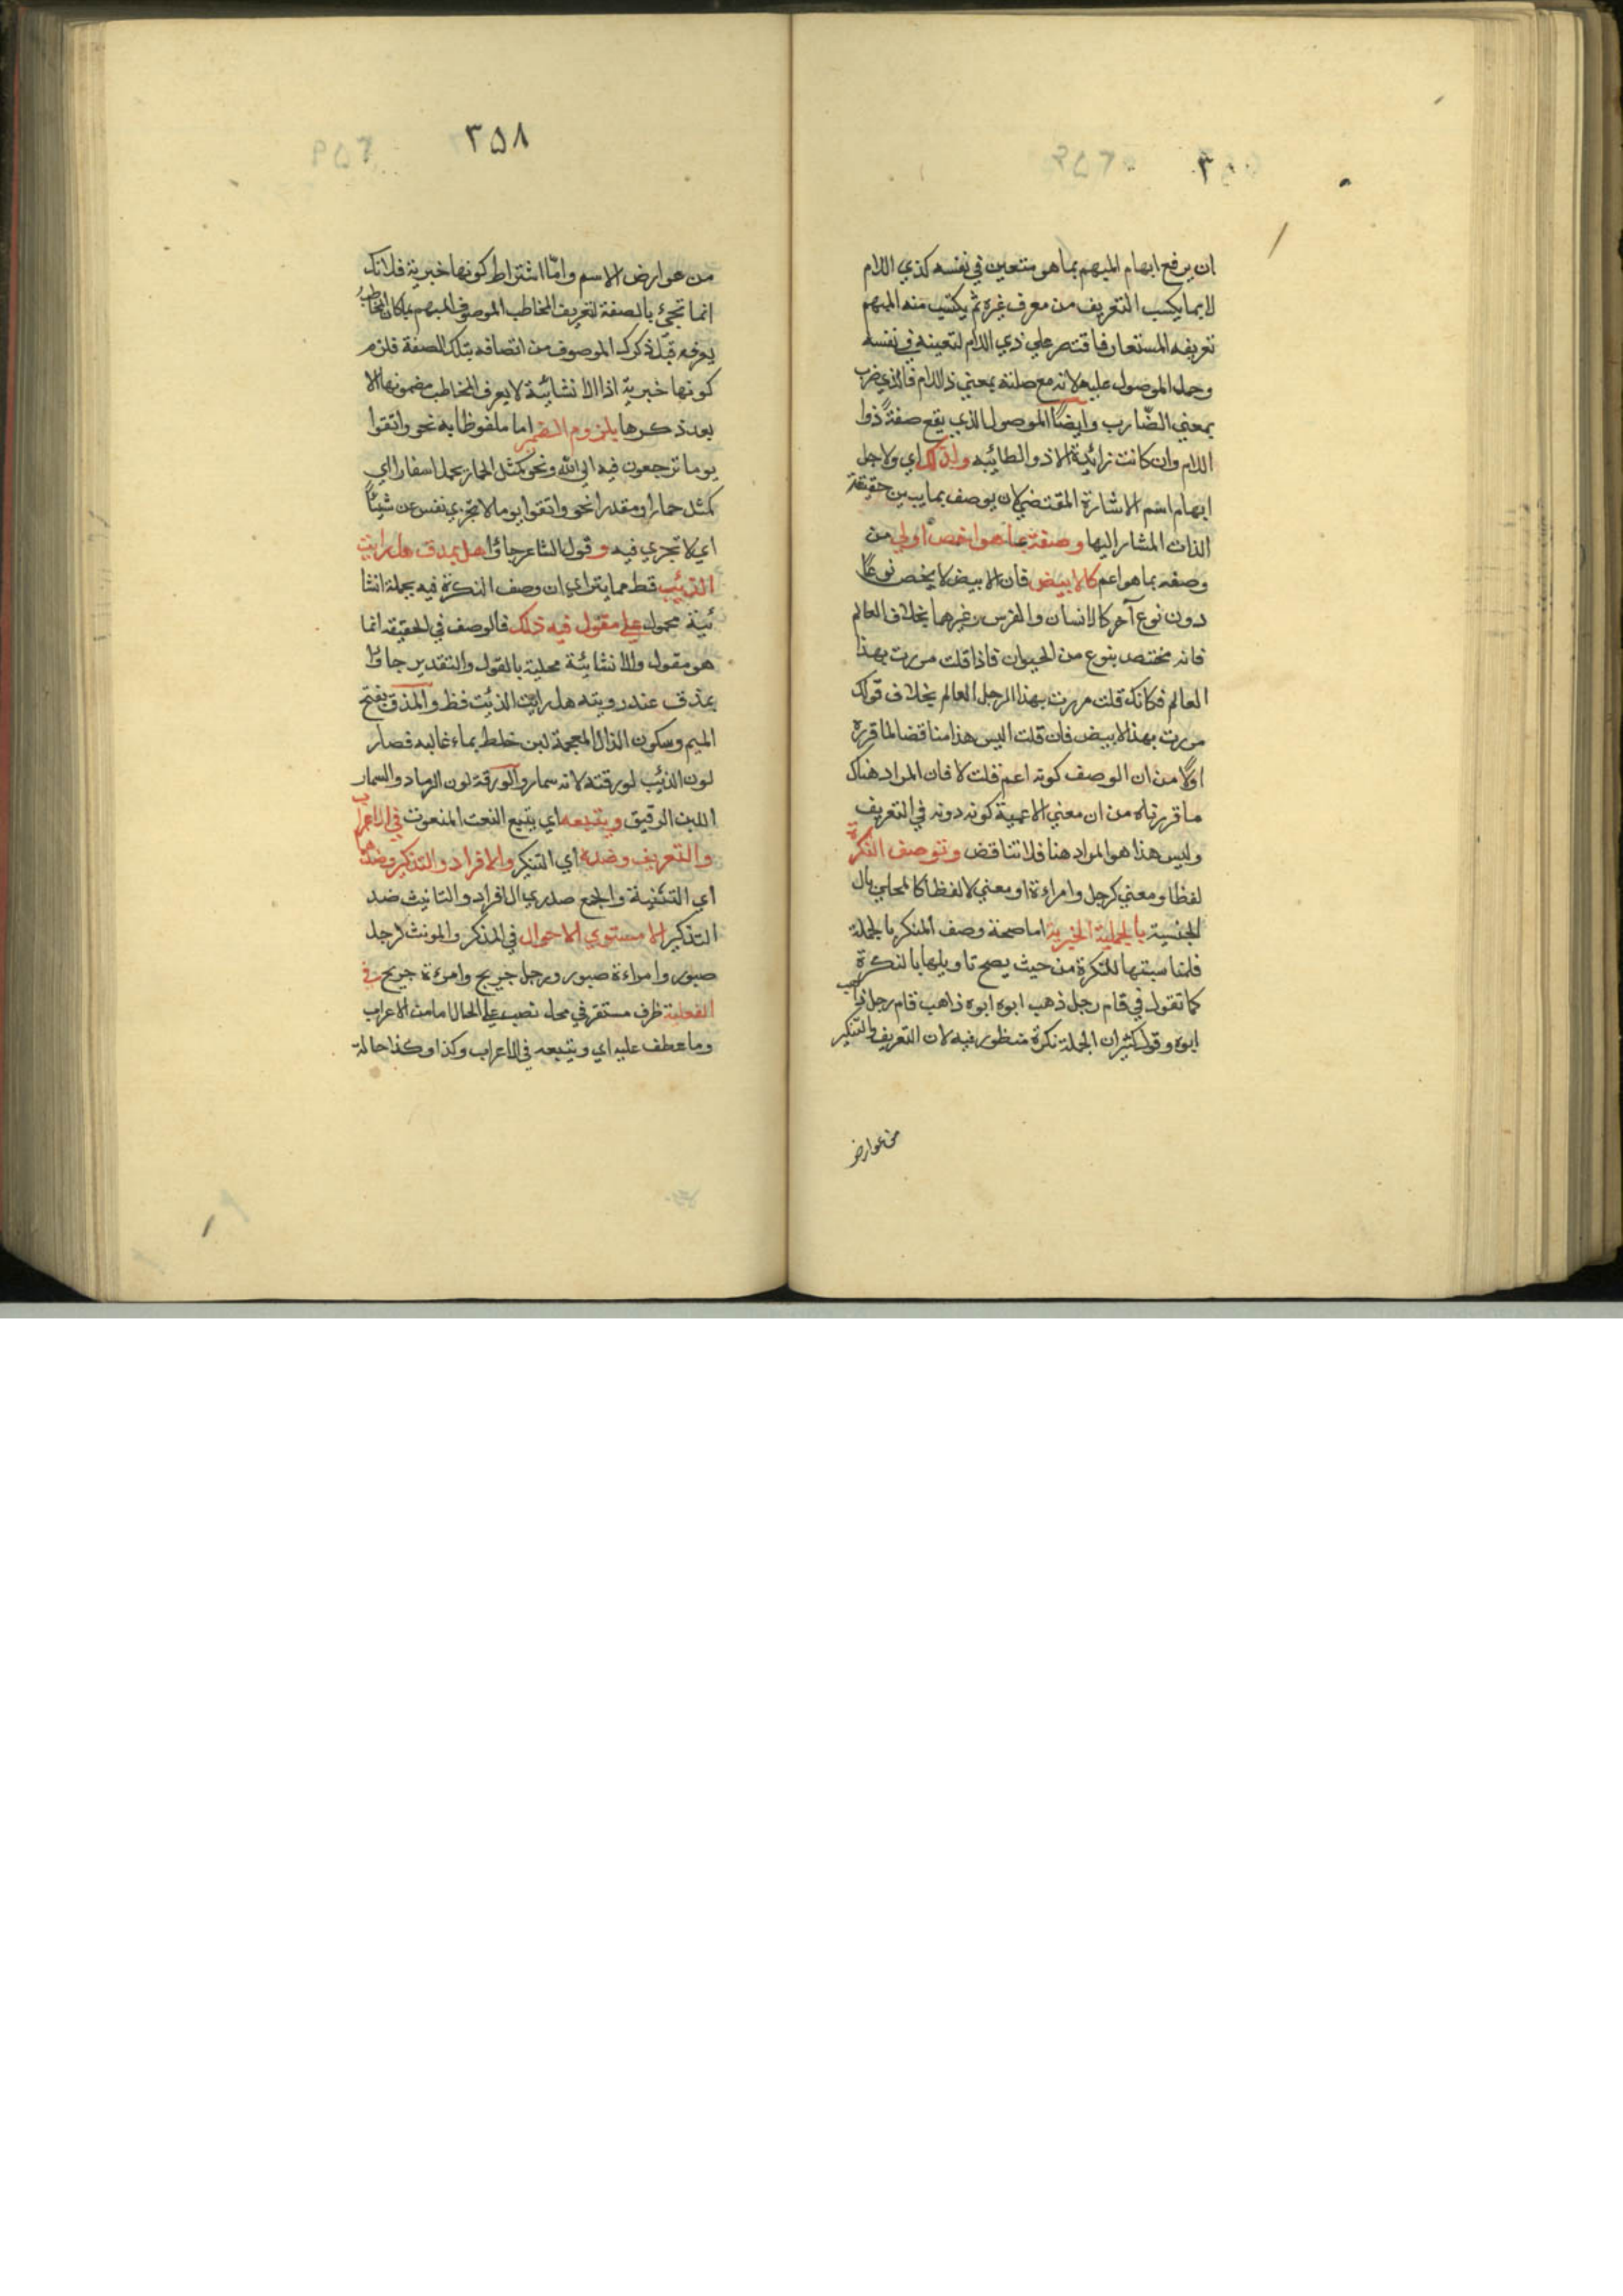 ان يرفع ابهام المبهم بما هو متعين في نفسه كذي اللام
لا بما يكسب التعريف من معرف غيره ثم يكتسب منه المبهم
تعريفه المستعار فاقتصر علي ذي اللام لتعينه في نفسه
وحمل الموصول عليه لانه مع صلته بمعني ذ اللام فالذي ضرب
بمعني الضّارب وايضاً الموصول الذي يقع صفةً ذوا
اللام وان كانت زائدة الا ذو الطائيه ولذلك اي ولاجل
ابهام اسم الاشارة المقتضي لان يوصف بما يبين حقيقة
الذات المشار اليها وصفته بما هو اخص اولي من
وصفه بما هو اعم كالابيض فان الابيض لا يخص نوعاً
دون نوع آخر كالانسان والفرس وغيرهما بخلاف العالم
فانه مختص بنوع من الحيوان فاذا قلت مررت بهذا
العالم فكانك قلت مررت بهذا الرجل العالم بخلاف قولك
مررت بهذا الابيض فان قلت اليس هذا مناقضا لما قرره
اولاً من ان الوصف كونه اعم قلت لا فان المراد هناك
ما قررناه من ان معني الاعمية كونه دونه في التعريف
وليس هذا هو المراد هنا فلا تناقض وتوصف النكرة
لفظا ومعني كرجل وامراءة او معني لا لفظا كالمحلي بال
الجنسية بالجملية الخبرية اما صحة وصف المنكر بالجملة
فلمناسبتها للنكرة من حيث يصح تاويلها بالنكرة
كما تقول في قام رجل ذهب ابوه ابوه ذاهب قام رجل ذاهب
ابوه وقول كثير ان الجملة نكرة منظور فيه لان التعريف والتنكير
من عوارض
٣٥٨
من عوارض الاسم وامّا اشتراط كونها خبرية فلانك
انما تجيئ بالصفة لتعريف المخاطب الموصوف المبهم بما كان المخاطب
يعرفه قبل ذكرك الموصوف من اتصافه بتلك الصفة فلزم
كونها خبرية اذا الانشائية لا يعرف المخاطب مضمونها الا
بعد ذكرها يلزوم الضمير اما ملفوظا به نحو واتقوا
يوما ترجعون فيه الي الله ونحو كمثل الحمار يحمل اسفارا اي
كمثل حمار او مقدرا نحو واتقوا يوما لا تجزي نفس عن شيئاً
اي لا تجزي فيه وقول الشاعر جاؤا هل بمدق هل رايت
الذئب قط مما يتراي ان وصف النكرة فيه بجملة انشا
ئية محمول علي مقول فيه ذلك فالوصف في الحقيقة انما
هو مقول والانشائية محلية بالقول والتقدير جاؤا
بمذق عند رويته هل رايت الذئب قط والمذق بفتح
الميم وسكون الذال المعجمة لبن خلط بماء غالبه فصار
لون الذئب لورقته لانه سمار والورقة لون الرماد والسمار
اللبن الرقيق ويتبعه اي يتبع النعت المنعوت في الاعراب
والتعريف وضده اي التنكير والافراد والتذكير وضدهما
اي التثنية والجمع ضدي الافراد والتانيث ضد
التذكير الا مستوي الاحوال في المذكر والمونث كرجل
صبور وامراءة صبور ورجل جريح وامرءة جريح في
الفعلية ظرف مستقر في محل نصب علي الحال اما من الاعراب
وما عطف عليه اي ويتبعه في الاعراب وكذا وكذا حالة